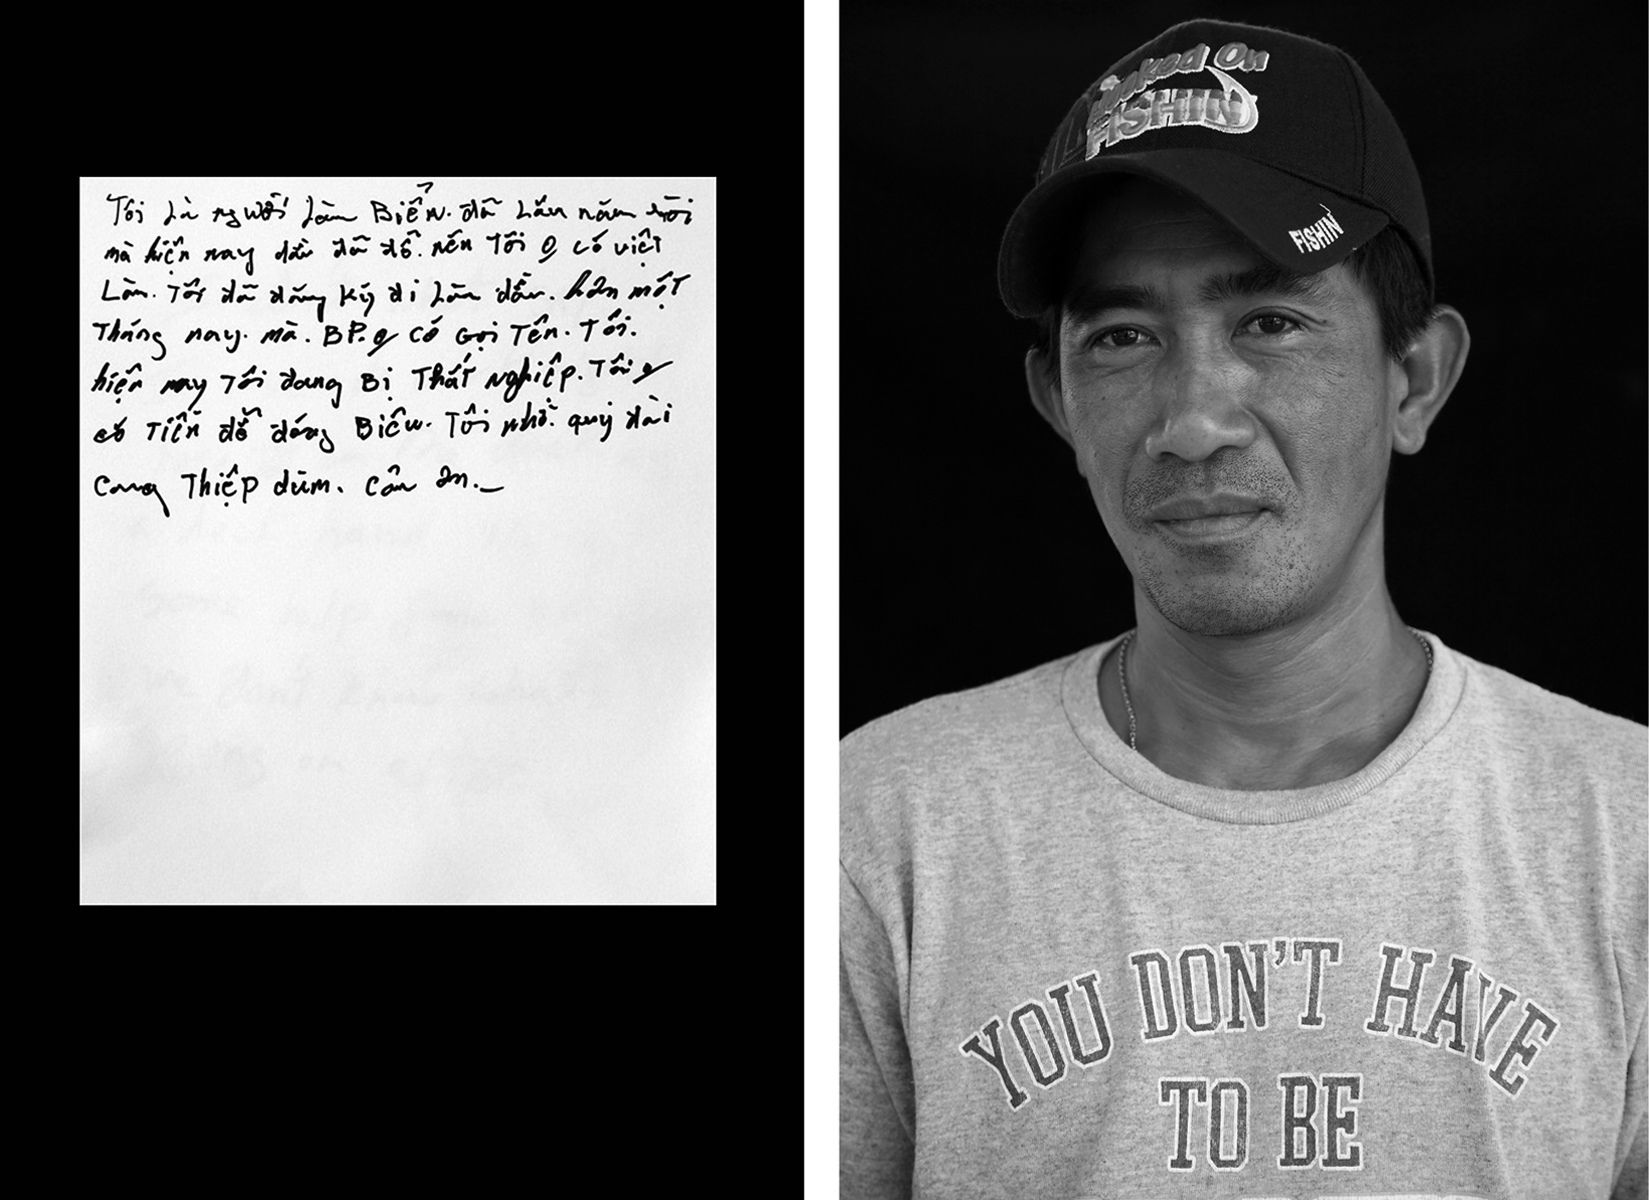 Tôi là người làm Biển. đã lâu năm rồi
mà hiện nay dầu đã đổ. nên Tôi o có việt
Làm. Tôi đã đăng ký đi làm dầu. hơn một
Tháng nay. mà. BP. o có Gọi Tên. Tôi.
hiện nay Tôi đang Bị Thất nghiệp. Tôi o
có Tiền để đóng Biêu. Tôi nhờ. quý đài
Cang Thiệp dùm. Cám ơn._
Hooked On
FISHIN'
FISHIN'
YOU DON'T HAVE
TO BE